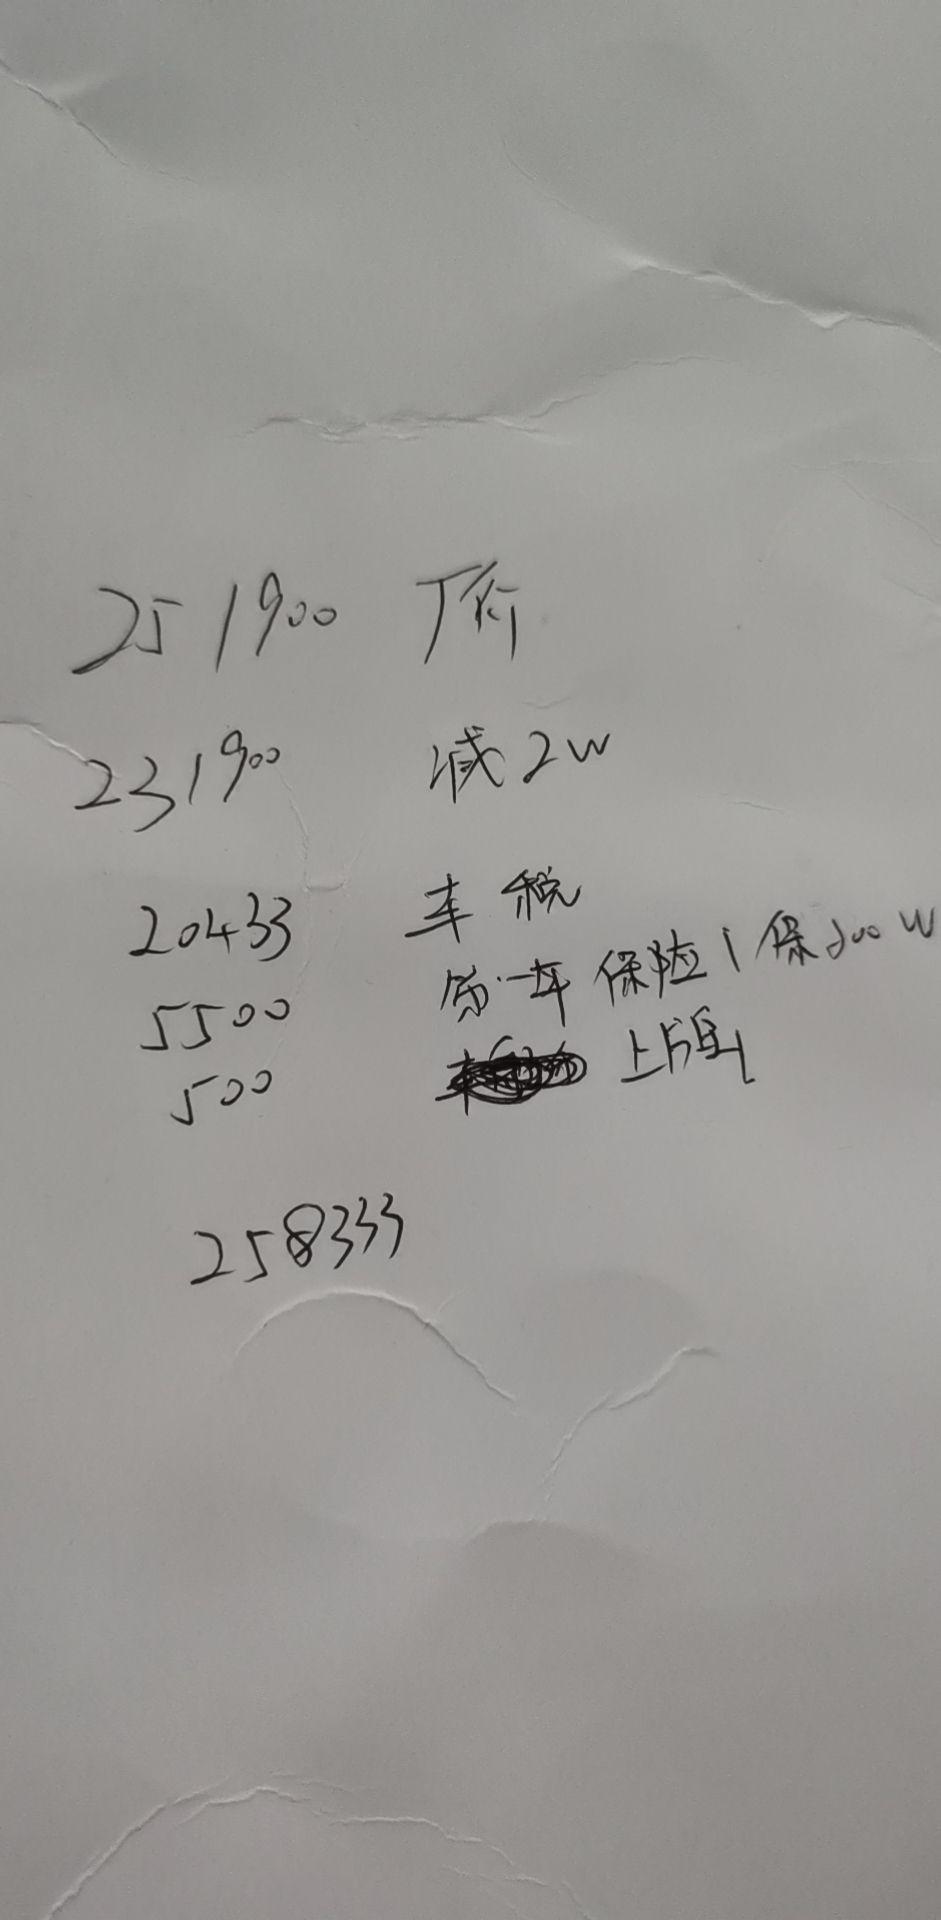 251900 厂价
231900 减2W
20433 车税
5500 第一年保险(保200W
500 上牌
258333